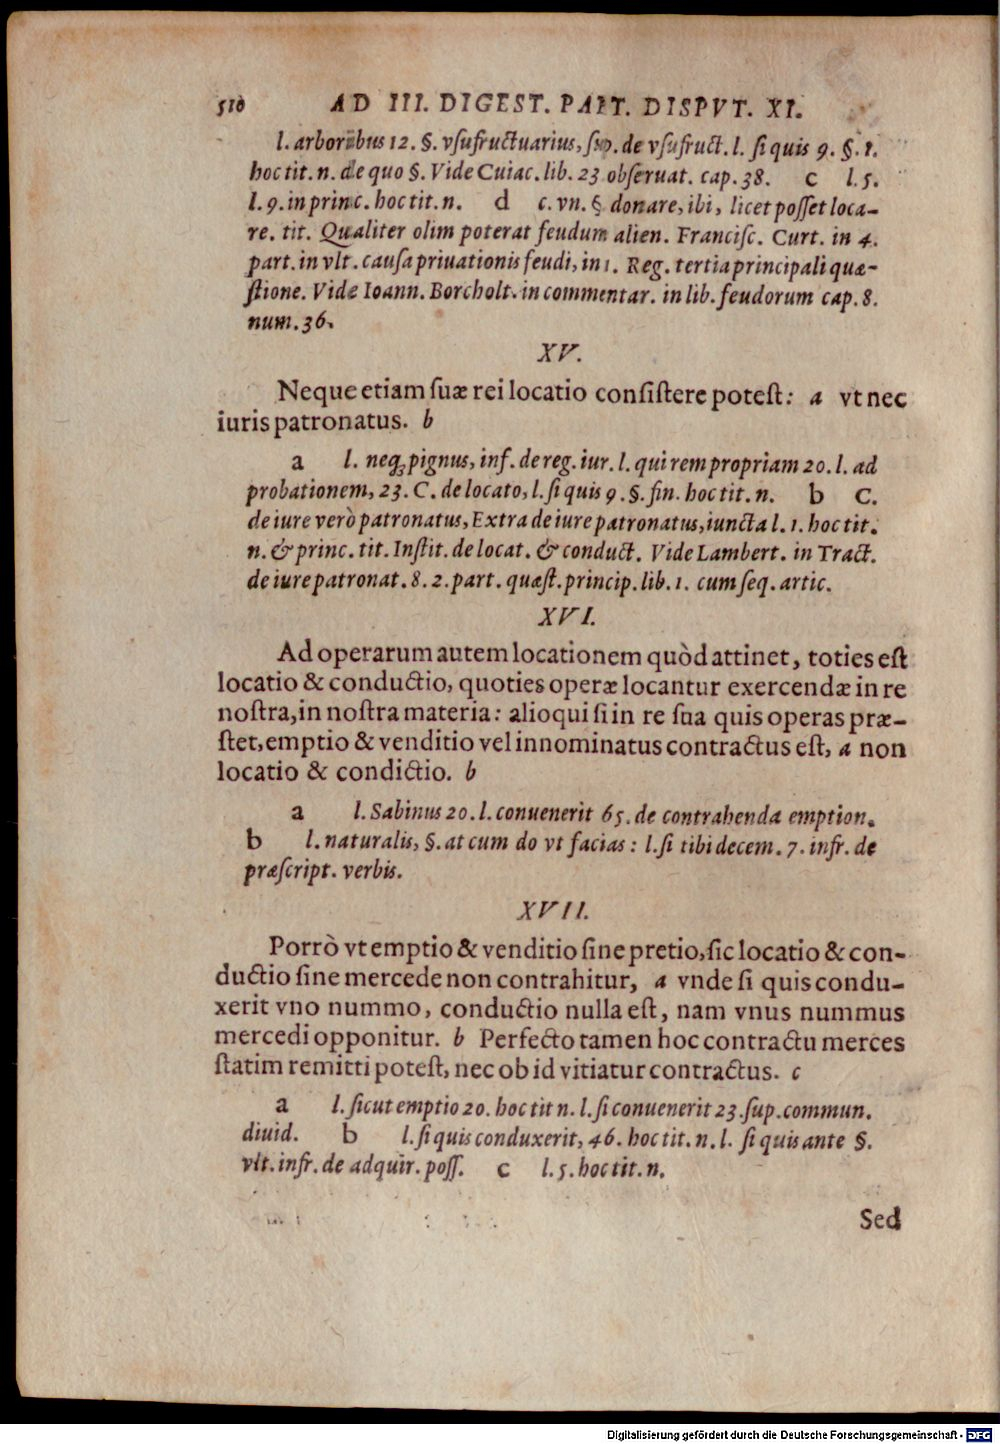 510 AD III. DIGEST. PART. DISPVT. XI.
l. arboribus 12. §. vſufructuarius, ſup. de vſufruct. l. ſi quis 9. §. 1.
hoc tit. n. de quo §. Vide Cuiac. lib. 23 obſeruat. cap. 38. c l. 5.
l. 9. in princ. hoc tit. n. d c. vn. § donare, ibi, licet poſſet loca-
re. tit. Qualiter olim poterat feudum alien. Franciſc. Curt. in 4.
part. in vlt. cauſa priuationis feudi, in 1. Reg. tertia principali quæ-
ſtione. Vide Ioann. Borcholt. in commentar. in lib. feudorum cap. 8.
num. 36.
XV.
Neque etiam ſuæ rei locatio conſiſtere poteſt: a vt nec
iuris patronatus. b
a l. neq; pignus, inf. de reg. iur. l. qui rem propriam 20. l. ad
probationem, 23. C. de locato, l. ſi quis 9. §. fin. hoc tit. n. b C.
de iure verò patronatus, Extra de iure patronatus, iuncta l. 1. hoc tit.
n. & princ. tit. Inſtit. de locat. & conduct. Vide Lambert. in Tract.
de iure patronat. 8. 2. part. quæſt. princip. lib. 1. cum ſeq. artic.
XVI.
Ad operarum autem locationem quòd attinet, toties eſt
locatio & conductio, quoties operæ locantur exercendæ in re
noſtra, in noſtra materia: alioqui ſi in re ſua quis operas præ-
ſtet, emptio & venditio vel innominatus contractus eſt, a non
locatio & condictio. b
a l. Sabinus 20. l. conuenerit 65. de contrahenda emption.
b l. naturalis, §. at cum do vt facias: l. ſi tibi decem. 7. infr. de
præſcript. verbis.
XVII.
Porrò vt emptio & venditio ſine pretio, ſic locatio & con-
ductio ſine mercede non contrahitur, a vnde ſi quis condu-
xerit vno nummo, conductio nulla eſt, nam vnus nummus
mercedi opponitur. b Perfecto tamen hoc contractu merces
ſtatim remitti poteſt, nec ob id vitiatur contractus. c
a l. ſicut emptio 20. hoc tit n. l. ſi conuenerit 23. ſup. commun.
diuid. b l. ſi quis conduxerit, 46. hoc tit. n. l. ſi quis ante §.
vlt. infr. de adquir. poſſ. c l. 5. hoc tit. n.
Sed
Digitalisierung gefördert durch die Deutsche Forschungsgemeinschaft - DFG